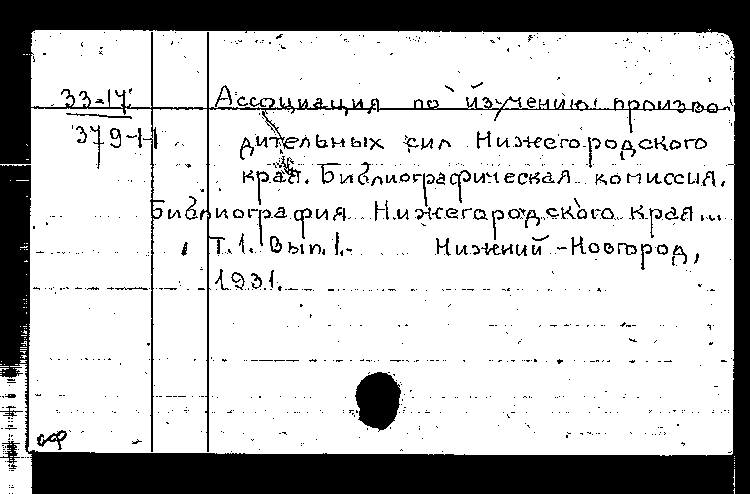 33-17
379-11
Ассоциация по изучению произво-
дительных сил Нижегородского
края. Библиографическая комиссия.
Библиография Нижегородского края...
Т.1. Вып.1.- Нижний-Новгород,
1931.